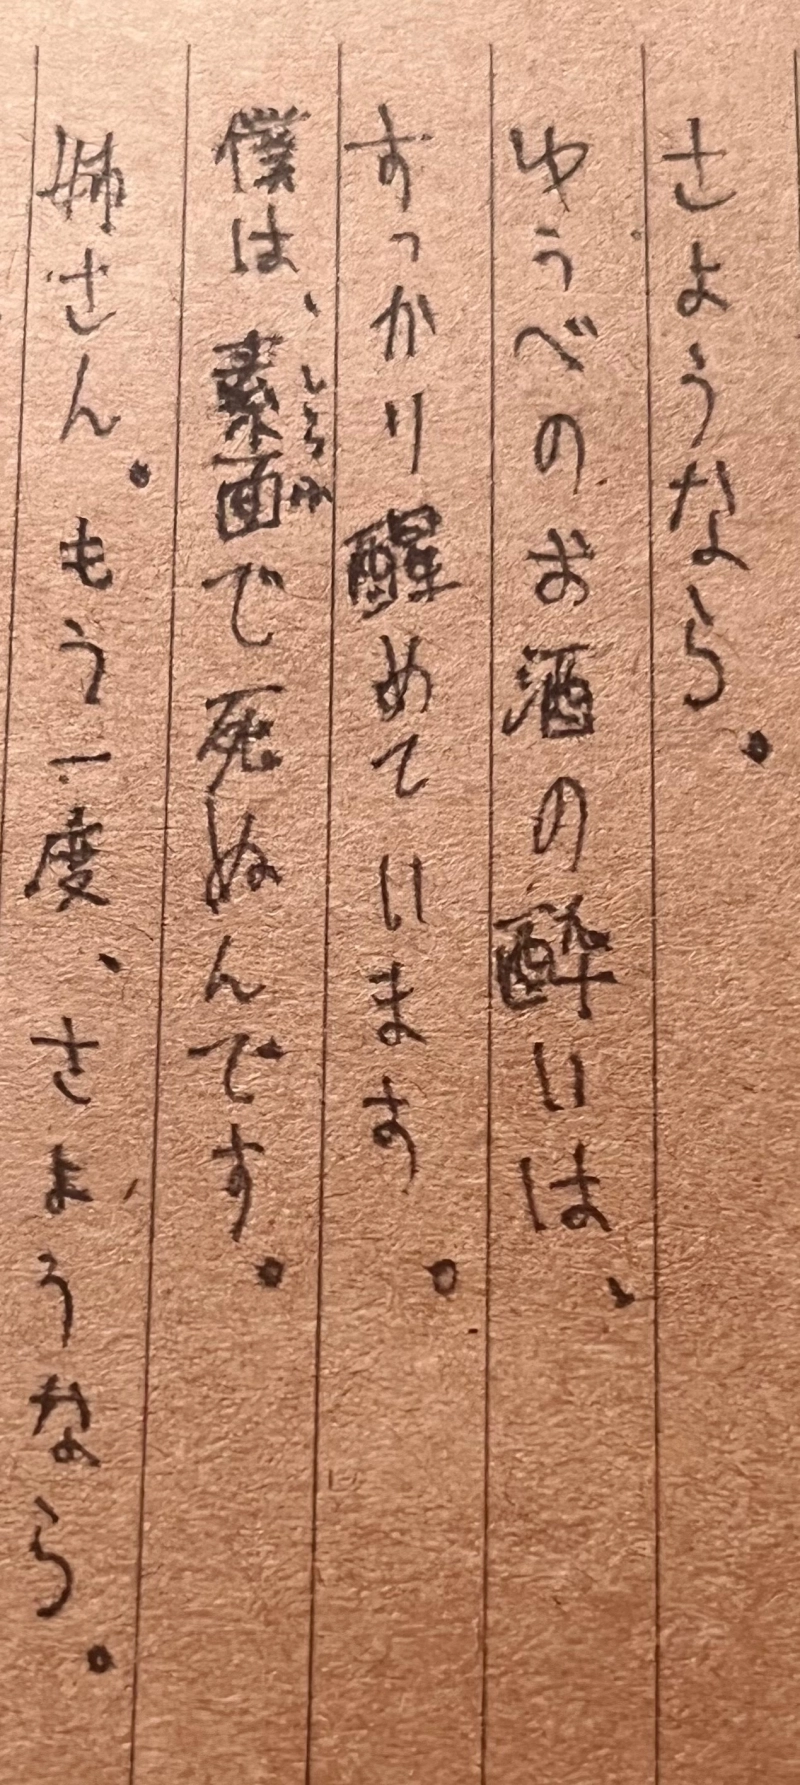 さようなら。
ゆうべのお酒の酔いは、
すっかり醒めています。
僕は、素面で死ぬんです。
しらふ
姉さん。もう一度、さようなら。